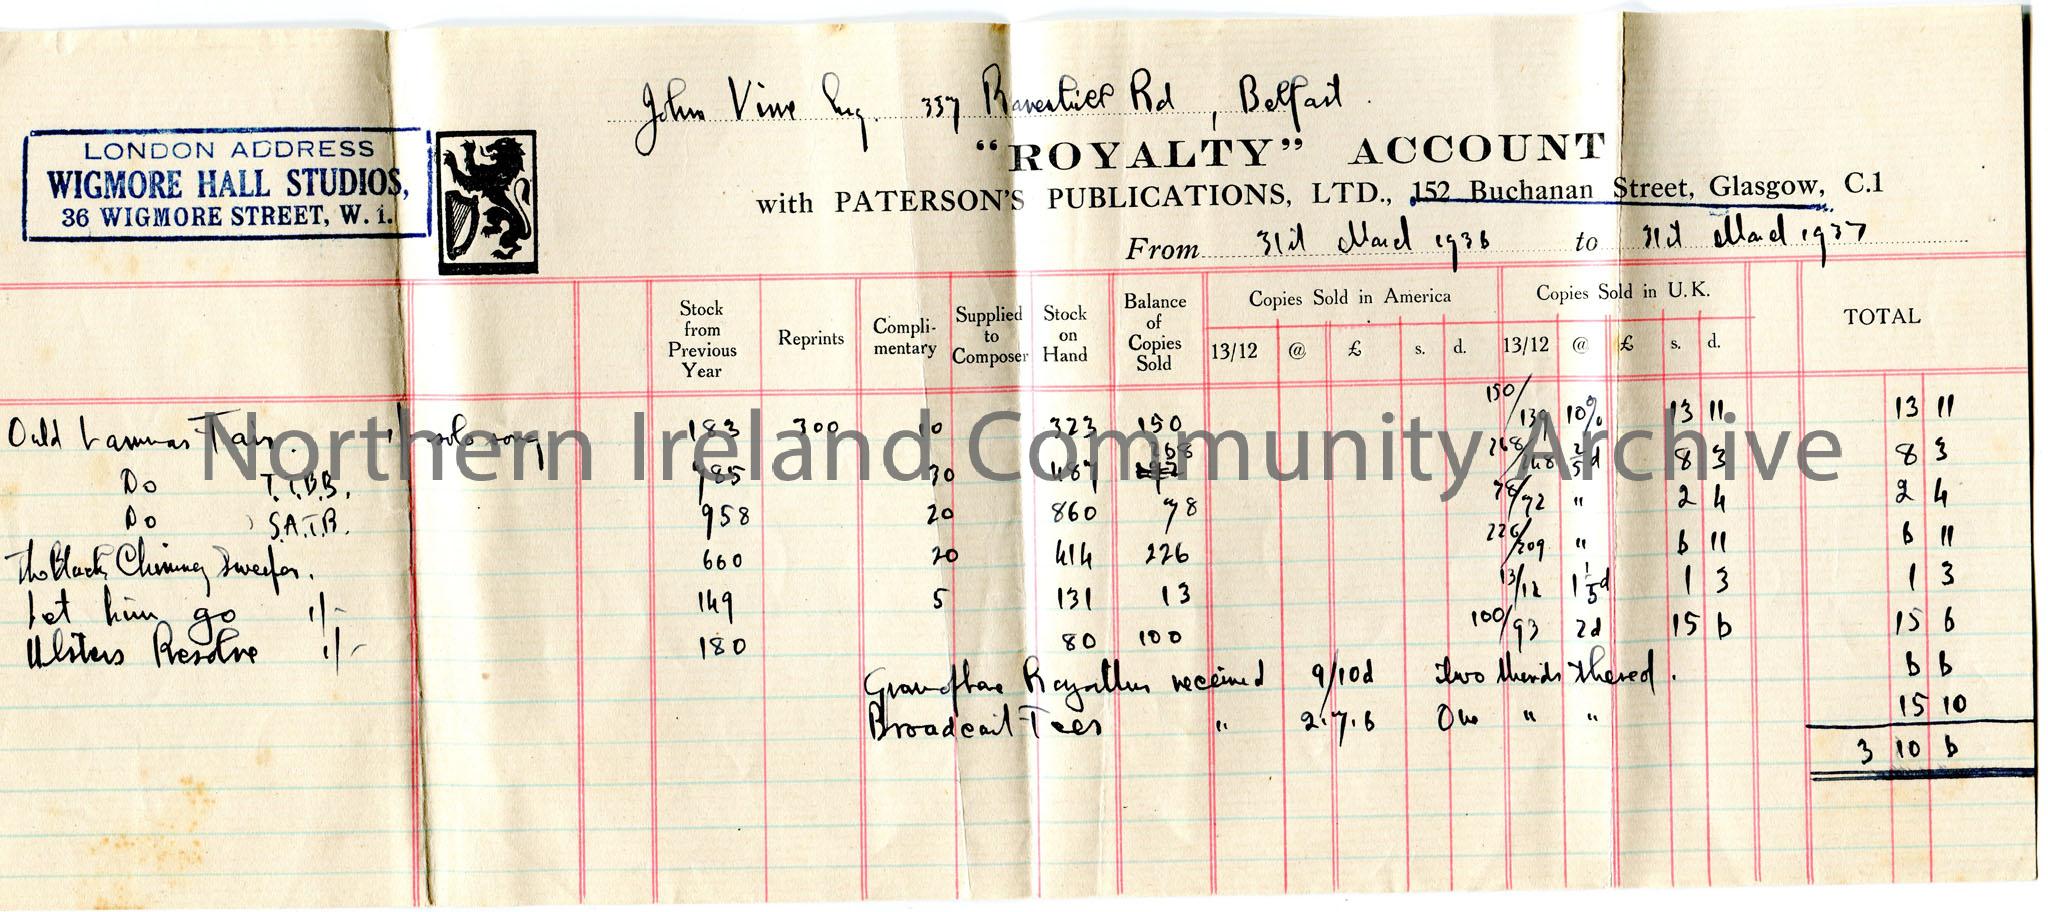 John Vine Esq. 337 Ravenhill Rd, Belfast.
LONDON ADDRESS
WIGMORE HALL STUDIOS,
36 WIGMORE STREET, W. 1.
"ROYALTY" ACCOUNT
with PATERSON'S PUBLICATIONS, LTD., 152 Buchanan Street, Glasgow, C.1
From 31st March 1936 to 31st March 1937
Stock from Previous Year Reprints Compli-mentary Supplied to Composer Stock on Hand Balance of Copies Sold Copies Sold in America Copies Sold in U.K. TOTAL
13/12 @ £ s. d. 13/12 @ £ s. d.
Ould Lammas Fair. solo song 183 300 10 323 150 150/139 10% 13 11 13 11
Do T.T.B.B. 785 30 487 268 268/248 2/5d 8 3 8 3
Do S.A.T.B. 958 20 860 78 78/72 " 2 4 2 4
The Black Chimney Sweeper. 660 20 414 226 226/209 " 6 11 6 11
Let him go 1/- 149 5 131 13 13/12 1 1/5d 1 3 1 3
Ulsters Resolve 1/- 180 80 100 100/93 2d 15 6 15 6
Gramophone Royalties received 9/10d two thirds thereof. 6 6
Broadcast Fees " 2.7.6 One " " 15 10
3 10 6
Northern Ireland Community Archive